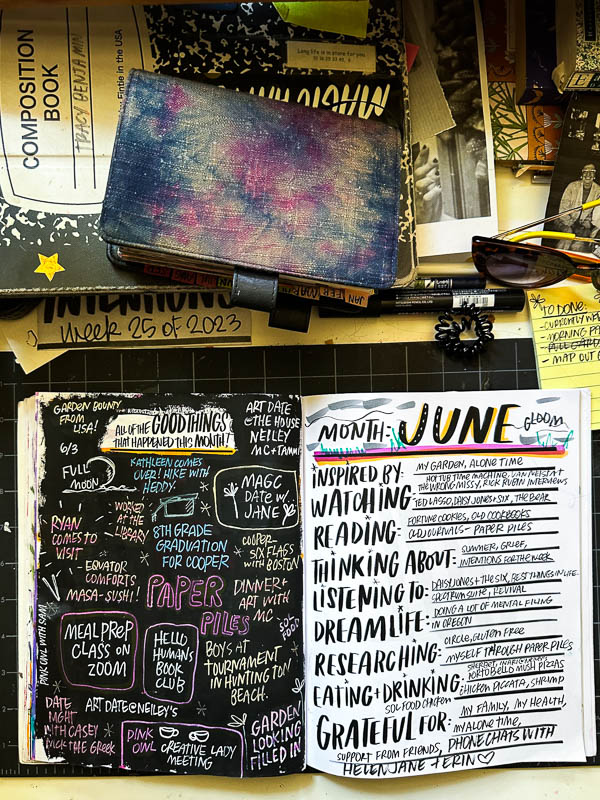 COMPOSITION
BOOK
TRACY BENJAMIN
Fintie in the USA
Long life is in store for you.
INTENTIONS
Week 25 of 2023
JAN
TO DONE:
- MORNING PA
- MAP OUT
GARDEN BOUNTY
FROM
LISA!
ALL OF THE GOOD THINGS
THAT HAPPENED THIS MONTH!
ART DATE
@ THE HOUSE
NEILEY
MC + TAMMI
6/3
FULL
MOON
KATHLEEN COMES
OVER! HIKE WITH
HEDDY
MAGC
DATE W.
JANE
RYAN
COMES TO
VISIT
WORKED
AT THE
LIBRARY
8TH GRADE
GRADUATION
FOR COOPER
COOPER-
SIX FLAGS
WITH BOSTON
EQUATOR
COMFORTS
MASA-SUSHI!
PAPER
PILES
DINNER +
ART WITH
MC
SOL
FOOD
PINK OWL WITH SAM
MEAL PREP
CLASS ON
ZOOM
HELLO
HUMANS
BOOK
CLUB
BOYS AT
TOURNAMENT
IN HUNTINGTON
BEACH.
DATE
NIGHT
WITH CASEY
NICK THE GREEK
ART DATE @ NEILEY'S
PINK
OWL
CREATIVE LADY
MEETING
GARDEN
LOOKING
FILLED IN
MONTH: JUNE GLOOM
INSPIRED BY: MY GARDEN, ALONE TIME
HOT TUB TIME MACHINE, VAN NEISTAT
THE WRONG MISSY, RICK RUBIN INTERVIEWS
WATCHING TED LASSO, DAISY JONES + SIX, THE BEAR
READING: FORTUNE COOKIES, OLD COOKBOOKS
OLD JOURNALS - PAPER PILES
THINKING ABOUT: SUMMER, GRIEF,
INTENTIONS FOR THE WEEK
LISTENING TO: DAISY JONES + THE SIX, BEST THINGS IN LIFE
SPECTRUM SUITE, REVIVAL
DREAM LIFE: DOING A LOT OF MENTAL FILING
IN OREGON
RESEARCHING: CIRCE, GLUTEN FREE
MYSELF THROUGH PAPER PILES
EATING + DRINKING: SHERBET,
PORTOBELLO MUSH PIZZAS
CHICKEN PICCATA, SHRIMP
SOL FOOD CHICKEN
GRATEFUL FOR: MY FAMILY, MY HEALTH,
MY ALONE TIME,
SUPPORT FROM FRIENDS, PHONE CHATS WITH
HELEN JANE + ERIN ♡